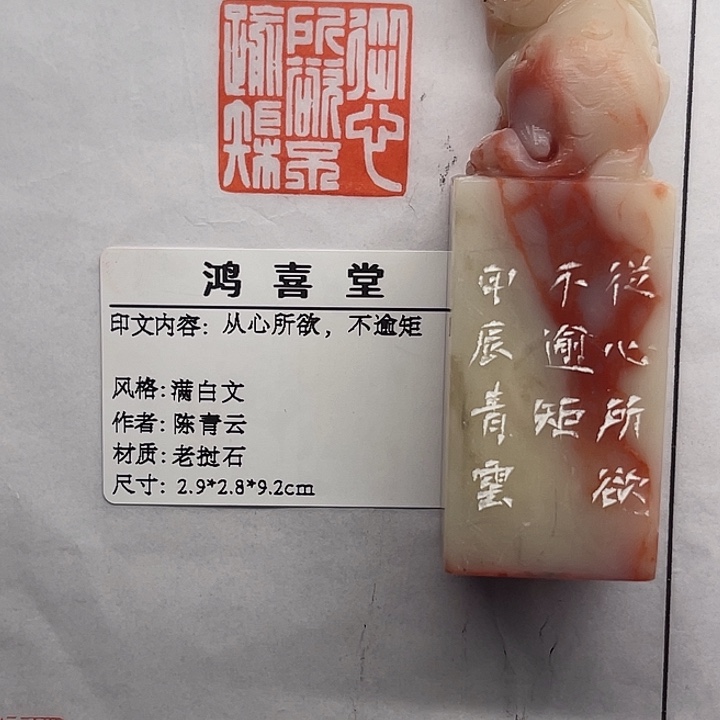 從心
所欲不
踰矩
鸿喜堂
印文内容: 从心所欲, 不逾矩
风格: 满白文
作者: 陈青云
材质: 老挝石
尺寸: 2.9*2.8*9.2cm
從心所欲
不逾矩
甲辰青雲